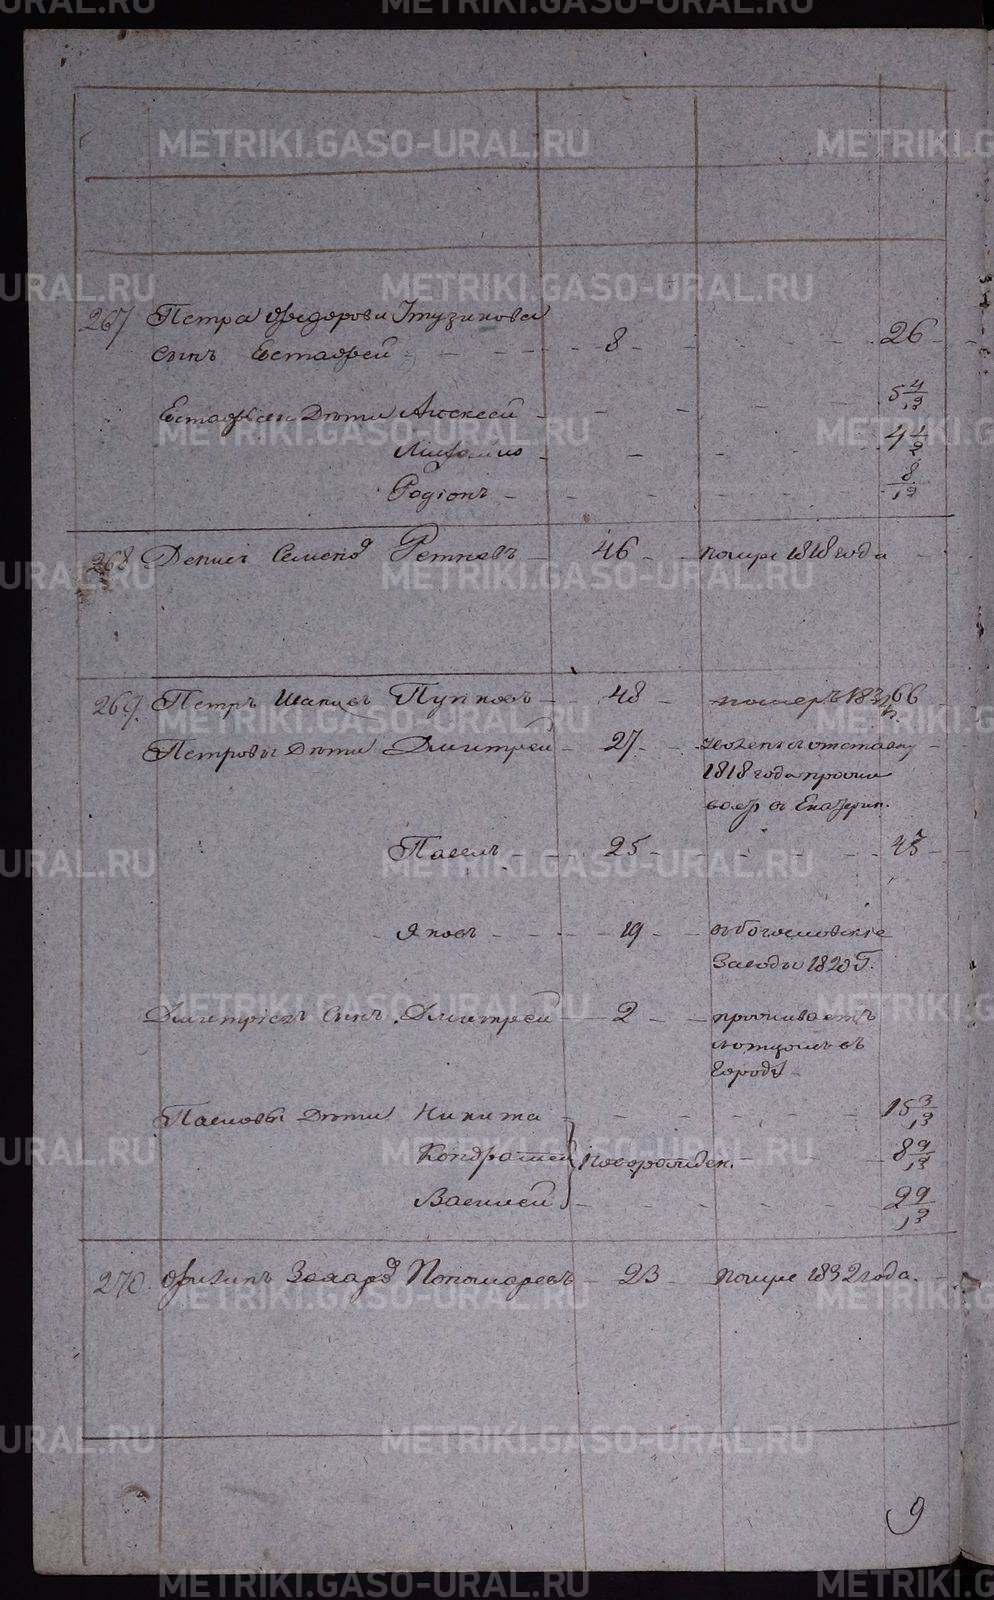 267 Петра Федорова Ступикова
сынъ Естафей - 8 - 26
Естафьевы дети Алексей - 5 4/12
Михайло - 4 1/2
Родіонъ - 8/12
268 Денисъ Семенов Ретневъ - 46 - помре 1818 года
269. Петръ Ивановъ Пупковъ - 48 - померъ 183 66
Петровы дети Дмитрей - 27 - отставку
1818 года прожи
вает в Екатерин.
Павелъ - 25 - 43
Яковъ - 19 - в Богословскіе
Заводы 1820 г.
Дмитріевъ сынъ Дмитрей - 2 - проживаетъ
с отцомъ въ
городе
Павловы дети Никита - 15 3/12
Кондратей новорожден. - 8 9/12
Василей - 2 9/12
270. Филипъ Захаров Пономаревъ - 23 - помре 1832 года.
9
METRIKI.GASO-URAL.RU